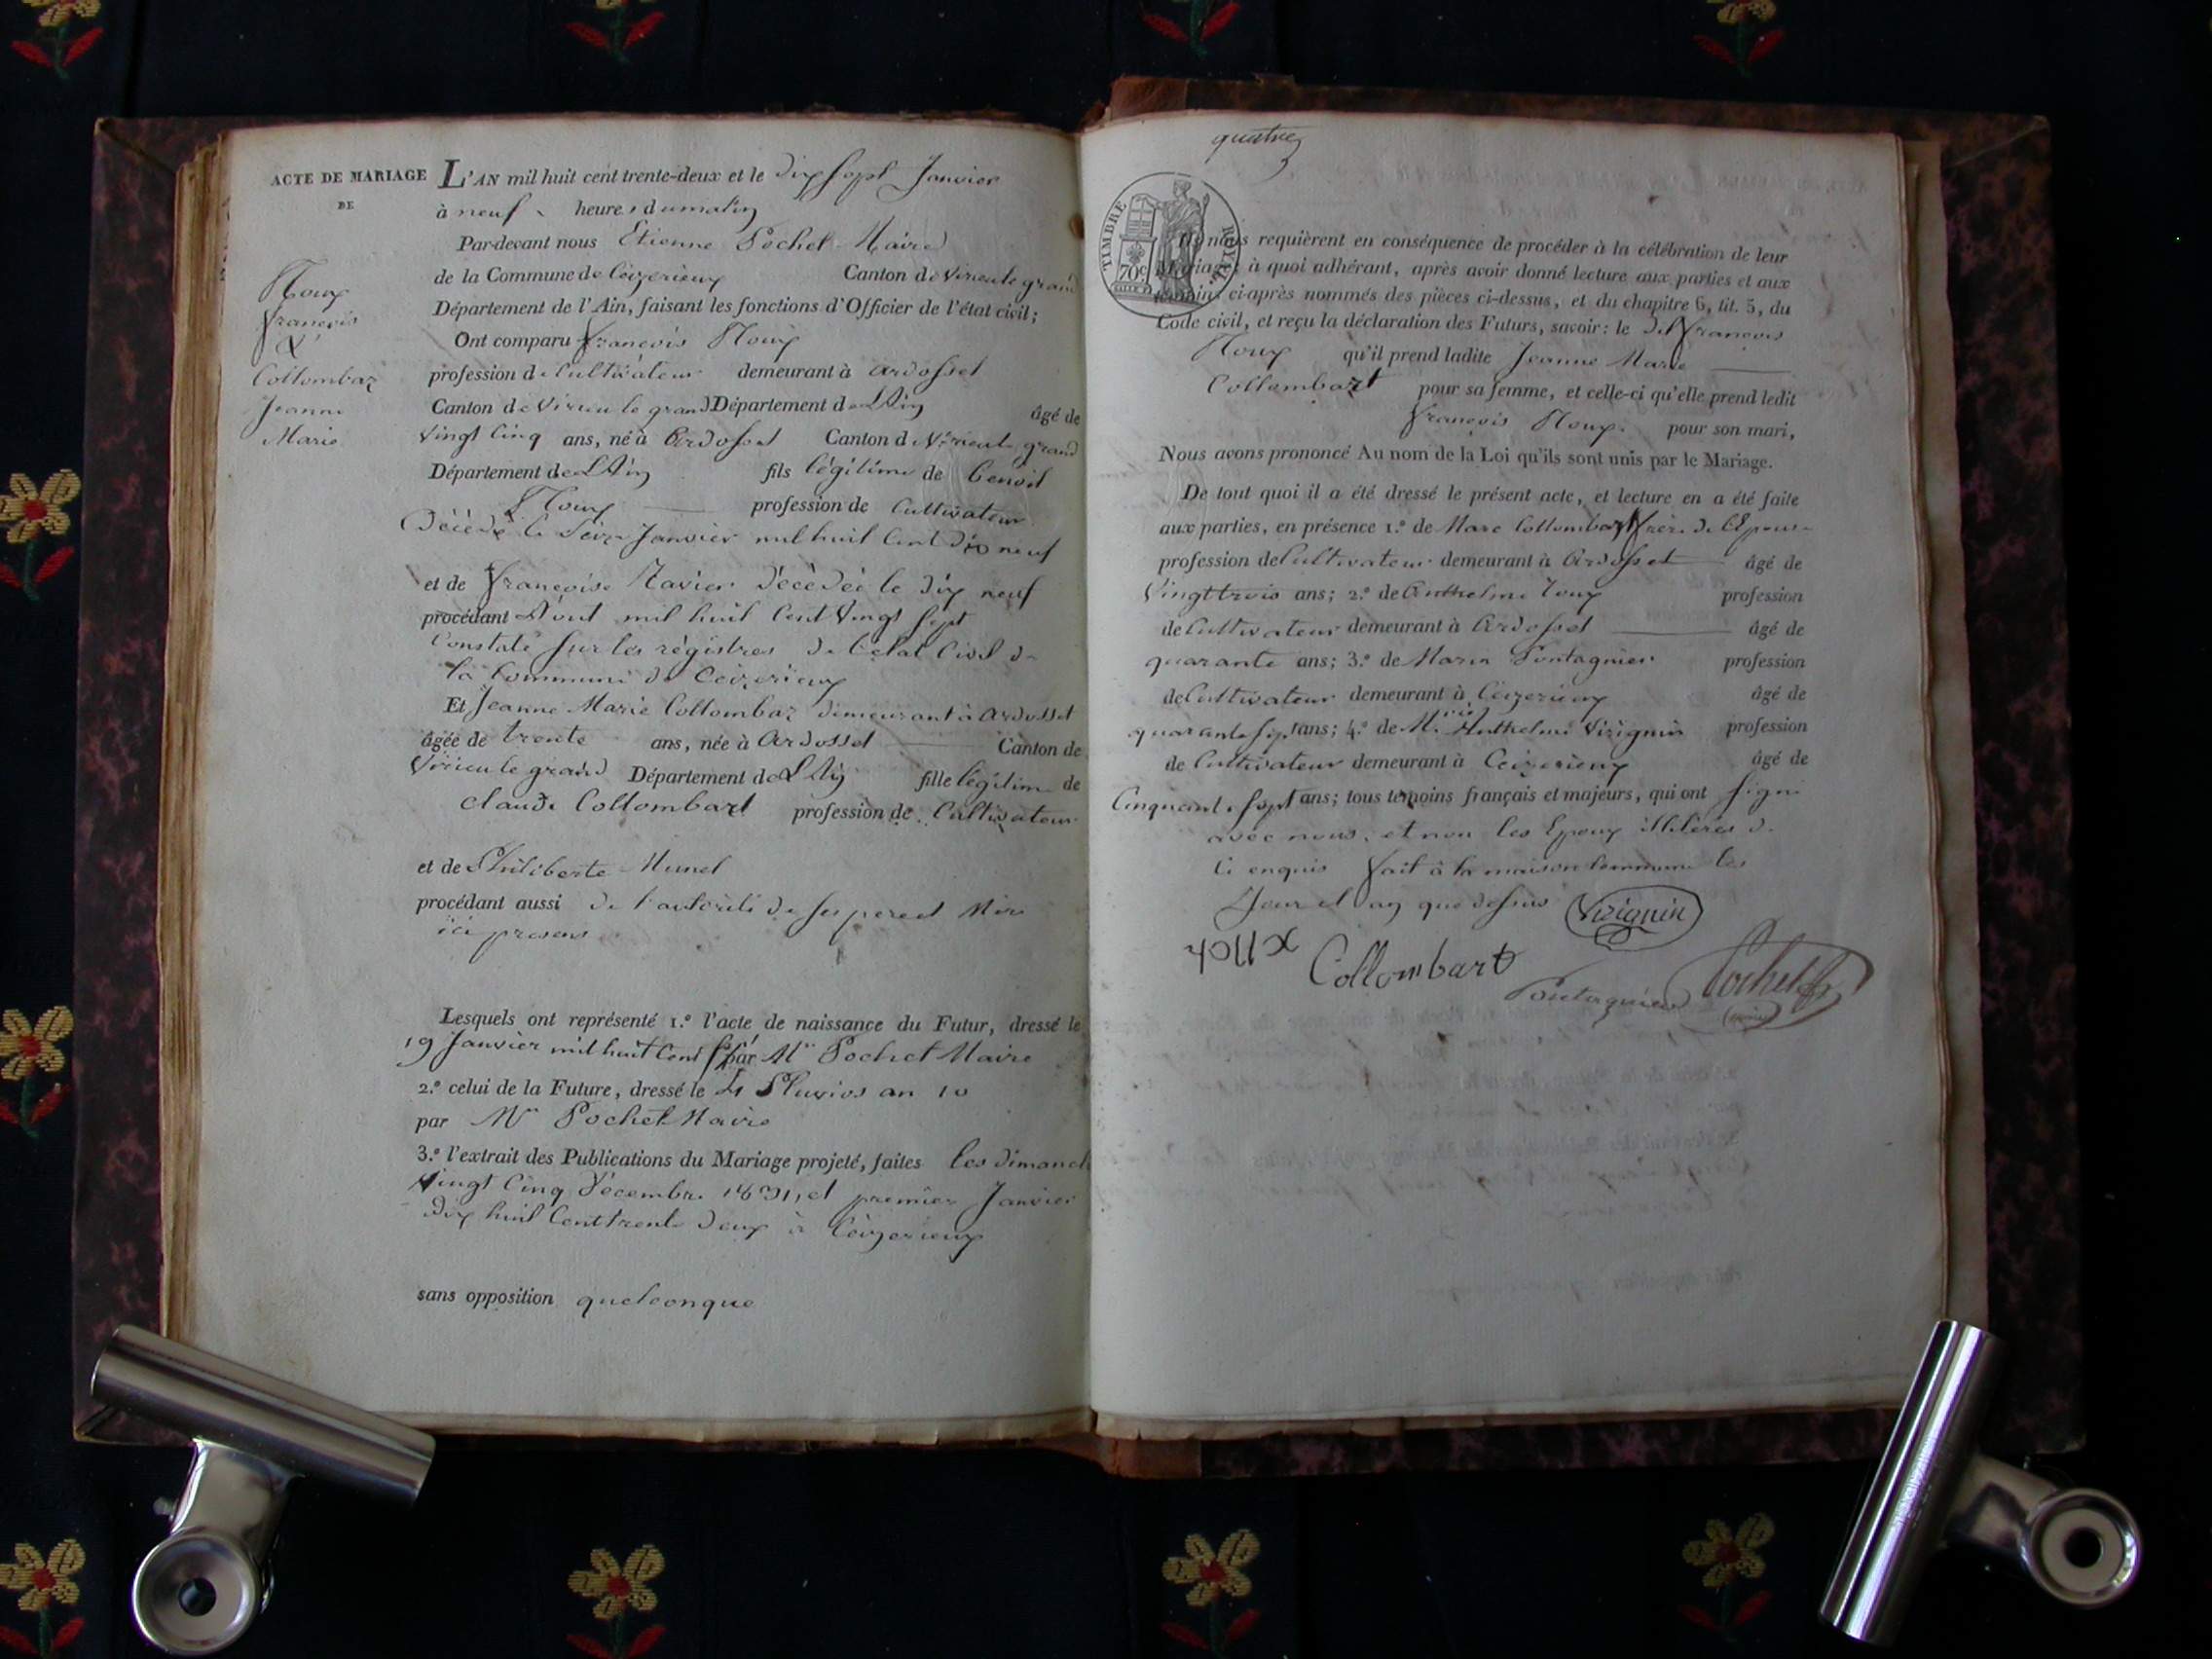 ACTE DE MARIAGE
DE
Roux
françois
&
Collombaz
Jeanne
Marie
L'AN mil huit cent trente-deux et le dix sept Janvier
à neuf heures du matin
Par-devant nous Etienne Pochet Maire
de la Commune de Ceizerieux Canton de Virieu le grand
Département de l'Ain, faisant les fonctions d'Officier de l'état civil;
Ont comparu françois Roux
profession de Cultivateur demeurant à Ardosset
Canton de Virieu le grand Département de L'Ain âgé de
Vingt Cinq ans, né à Ardosset Canton de Virieu le grand
Département de L'Ain fils légitime de Benoit
Roux profession de Cultivateur
Décédé le Janvier mil huit Cent dix neuf
et de françoise Tavier Décédée le dix neuf
procédant Aout mil huit Cent Vingt Sept
Constaté Sur les régistres de l'etat Civil de
la Commune de Ceizerieux
Et Jeanne Marie Collombaz demeurant à Ardosset
âgée de trente ans, née à Ardosset Canton de
Virieu le grand Département de L'Ain fille légitime de
Claude Collombart profession de Cultivateur
et de Philiberte Munet
procédant aussi de l'autorité de Ses pere et Mere
ici presens
Lesquels ont représenté 1.º l'acte de naissance du Futur, dressé le
19 Janvier mil huit Cent par Mr Pochet Maire
2.º celui de la Future, dressé le 4 Pluvios an 10
par Mr Pochet Maire
3.º l'extrait des Publications du Mariage projeté, faites les dimanch
Vingt Cinq Décembre 1831, et premier Janvier
dix huit Cent trente deux à Ceizerieux
sans opposition quelconque
quatre
TIMBRE ROYAL
70c
Ils nous requièrent en conséquence de procéder à la célébration de leur
Mariage, à quoi adhérant, après avoir donné lecture aux parties et aux
témoins ci-après nommés des pièces ci-dessus, et du chapitre 6, tit. 5, du
Code civil, et reçu la déclaration des Futurs, savoir: le dit françois
Roux qu'il prend ladite Jeanne Marie
Collombart pour sa femme, et celle-ci qu'elle prend ledit
françois Roux. pour son mari,
Nous avons prononcé Au nom de la Loi qu'ils sont unis par le Mariage.
De tout quoi il a été dressé le présent acte, et lecture en a été faite
aux parties, en présence 1.º de Marc Collombart frère de l'Epouse
profession de Cultivateur demeurant à Ardosset âgé de
Vingt trois ans; 2.º de Anthelme roux profession
de Cultivateur demeurant à Ardosset âgé de
quarante ans; 3.º de Marin Pontagnier profession
de Cultivateur demeurant à Ceizerieux âgé de
quarante sept ans; 4.º de Anthelme Virignin profession
de Cultivateur demeurant à Ceizerieux âgé de
Cinquante sept ans; tous témoins français et majeurs, qui ont signé
avec nous, et non les Epoux illiterés de
Ce enquis fait à la maison Commune les
Jour et an que dessus Virignin
roux Collombart
Pontagnier Pochet
(maire)